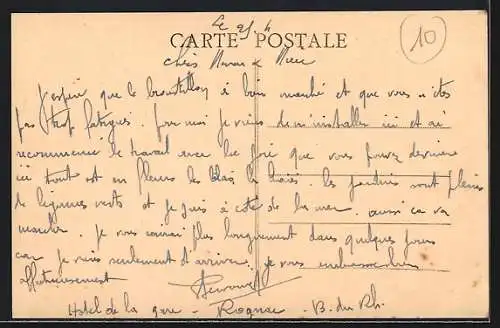 Le 25 4
CARTE POSTALE
10
chers Maman & Mimi
J'espère que le brouillon à bon marché et que vous n'êtes
pas trop fatigués. Pour moi je viens de m'installer ici et ai
recommencé le travail avec la joie que vous pouvez deviner
ici tout est en fleurs les lilas les haies. les jardins sont pleins
de légumes verts et je suis à côté de la mer. aussi ça va
marcher. je vous écrirai plus longuement dans quelques jours
car je viens seulement d'arriver je vous embrasse bien
affectueusement
Hotel de la gare - Rognac - B. du Rh.